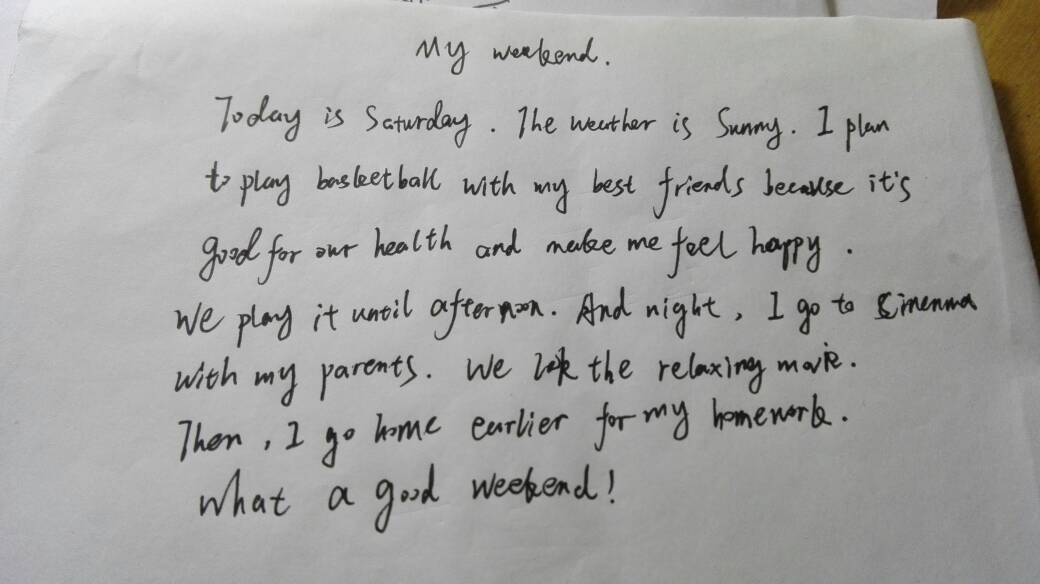 My weekend.
Today is Saturday. The weather is Sunny. I plan
to play basketball with my best friends because it's
good for our health and make me feel happy.
We play it until afternoon. And night, I go to Cinenma
with my parents. We look the relaxing movie.
Then, I go home earlier for my homework.
What a good weekend!